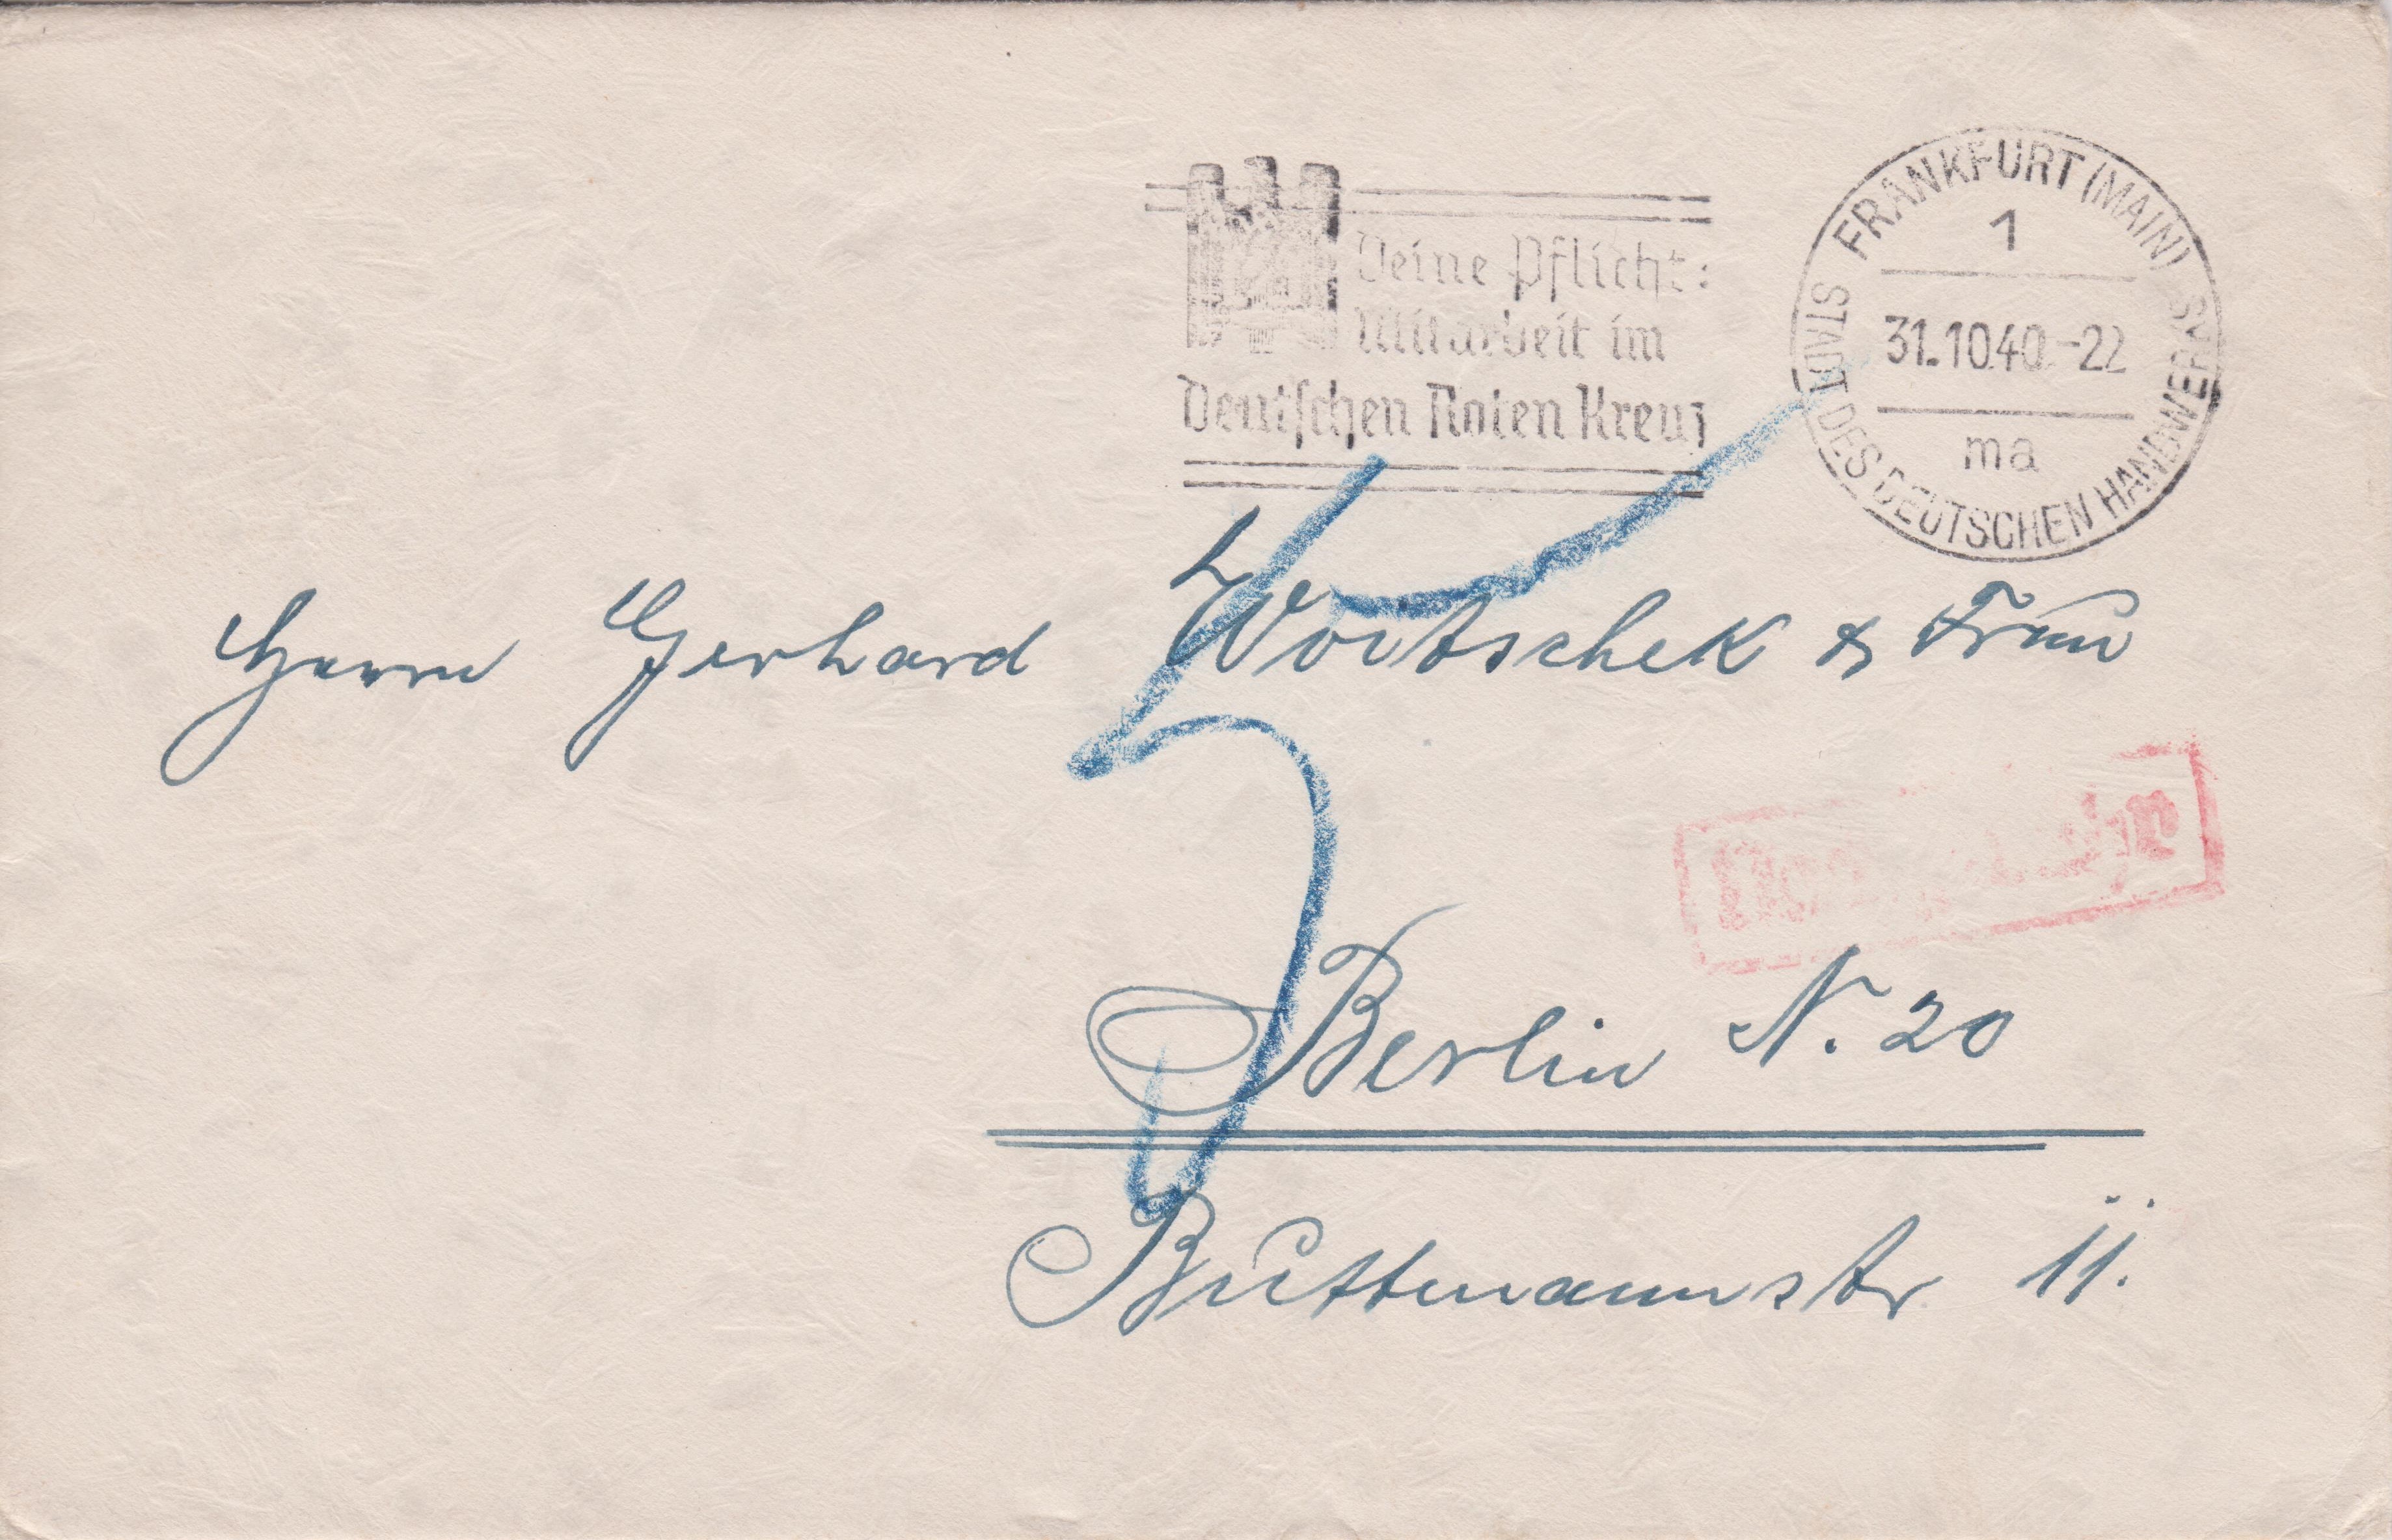 Deine Pflicht:
Mitarbeit im
Deutschen Roten Kreuz
FRANKFURT (MAIN)
1
31.10.40.-22
ma
STADT DES DEUTSCHEN HANDWERKS
Herrn Gerhard Woitschek & Frau
Nachgebühr
Berlin N. 20
Buttmannstr 11.